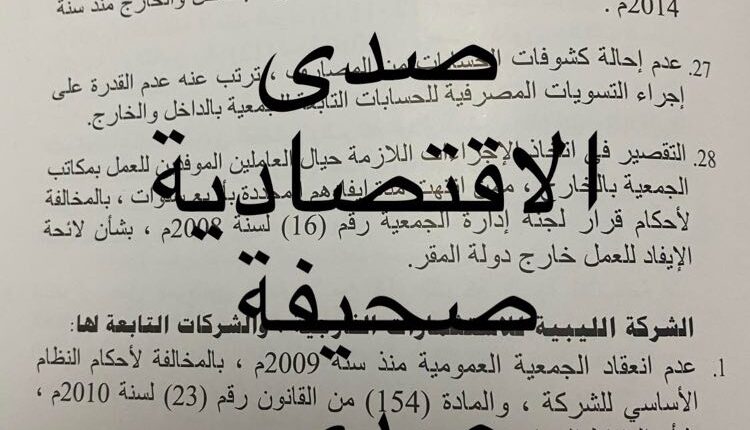 2014م .
والخارج منذ سنة
27. عدم إحالة كشوفات الحسابات من المصارف ، ترتب عنه عدم القدرة على
إجراء التسويات المصرفية للحسابات التابعة للجمعية بالداخل والخارج.
28. التقصير في اتخاذ الإجراءات اللازمة حيال العاملين الموفدين للعمل بمكاتب
الجمعية بالخارج ، ممن انتهت مدة إيفادهم المحددة بأربع سنوات ، بالمخالفة
لأحكام قرار لجنة إدارة الجمعية رقم (16) لسنة 2008م ، بشأن لائحة
الإيفاد للعمل خارج دولة المقر.
الشركة الليبية للاستثمارات الخارجية والشركات التابعة لها:
1. عدم انعقاد الجمعية العمومية منذ سنة 2009م ، بالمخالفة لأحكام النظام
الأساسي للشركة ، والمادة (154) من القانون رقم (23) لسنة 2010م ،
صدى
الاقتصادية
صحيفة